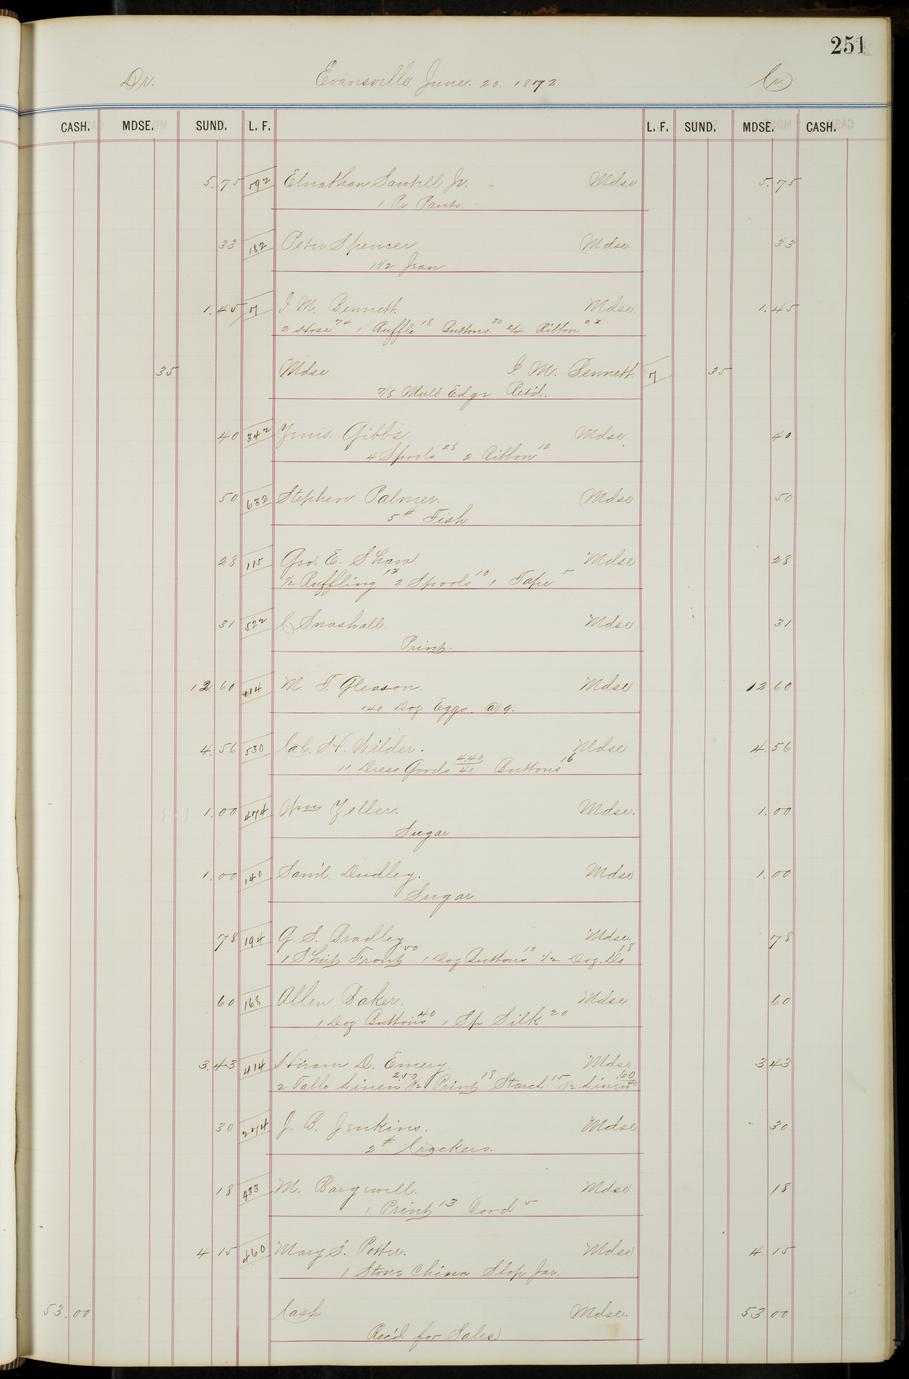 251
Dr. Evansville June. 20. 1872. Cr.
CASH. MDSE. SUND. L. F. L. F. SUND. MDSE. CASH.
5.75 592 Elnathan Sawtell Jr. Mdse 5.75
1 Pr Pants
33 182 Peter Spencer Mdse 33
1 1/2 Jean
1.45 7 I. M. Bennett. Mdse 1.45
2 Hose 1 Ruffle 18 Buttons 20 2/4 Ribbon
35 Mdse I. M. Bennett 7 35
7/8 Edge Ret'd.
40 342 Gibbs Mdse. 40
4 Spools 28 2 Ribbon 12
50 632 Stephen Palmer. Mdse 50
5# Fish
28 115 Geo. E. Shaw Mdse 28
1/2 Ruffling 13 2 Spools 10 1 Tape 5
31 522 C Snashall Mdse 31
Print.
12 60 414 M. T. Gleason. Mdse 12 60
140 Doz Eggs. @ 9.
4.56 530 H. Wilder. Mdse 4.56
11 Dress Goods 4.40 40 Buttons 16
1.00 474 Wm Zeller. Mdse. 1.00
Sugar
1.00 140 Sam'l Dudley. Mdse 1.00
Sugar
78 194 G. S. Bradley Mdse. 78
1 Shirt Front 50 1 Doz Buttons 10 1/2 Doz. Do 18
60 168 Allen Baker. Mdse 60
1 Doz Buttons 40 1 Sp Silk 20
3.43 414 Hiram D. Emery Mdse 3.43
2 Table Linen 250 1 1/2 Print 18 Starch 15 1/2 Linen .60
30 274 J. B. Jenkins. Mdse 30
2# Crackers.
18 483 M. Bagwell. Mdse 18
1 Print 13 Cord 5
4 15 460 Mary S. Potter. Mdse 4.15
1 Stone China Slop Jar.
53.00 Cash Mdse. 53.00
Rec'd for Sales